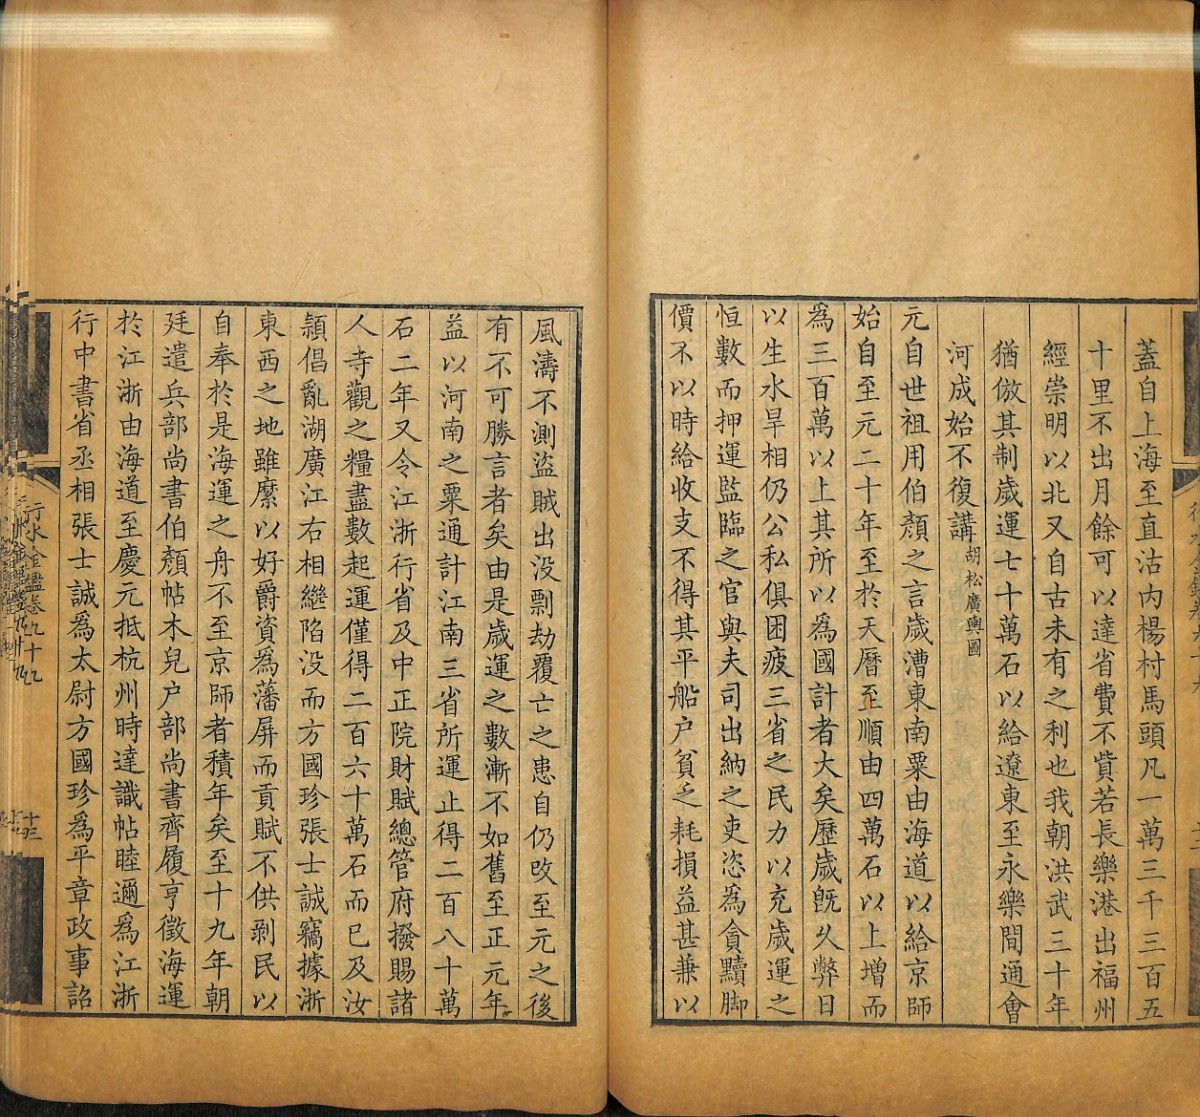 蓋自上海至直沽内楊村馬頭凡一萬三千三百五
十里不出月餘可以達省費不貲若長樂港出福州
經崇明以北又自古未有之利也我朝洪武三十年
猶倣其制歲運七十萬石以給遼東至永樂間通會
河成始不復講胡松廣輿圖
元自世祖用伯顏之言歲漕東南粟由海道以給京師
始自至元二十年至於天曆至順由四萬石以上增而
為三百萬以上其所以為國計者大矣歷歲旣久弊日
以生水旱相仍公私俱困疲三省之民力以充歲運之
恒數而押運監臨之官與夫司出納之吏恣為貪黷脚
價不以時給收支不得其平船户貧乏耗損益甚兼以
風濤不測盜賊出没剽劫覆亡之患自仍改至元之後
有不可勝言者矣由是歲運之數漸不如舊至正元年
益以河南之粟通計江南三省所運止得二百八十萬
石二年又令江浙行省及中正院財賦總管府撥賜諸
人寺觀之糧盡數起運僅得二百六十萬石而已及汝
頴倡亂湖廣江右相繼陷没而方國珍張士誠竊據浙
東西之地雖縻以好爵資為藩屏而貢賦不供剥民以
自奉於是海運之舟不至京師者積年矣至十九年朝
廷遣兵部尚書伯顏帖木兒户部尚書齊履亨徵海運
於江浙由海道至慶元抵杭州時達識帖睦邇為江浙
行中書省丞相張士誠為太尉方國珍為平章政事詔
行水金鑑卷
十三